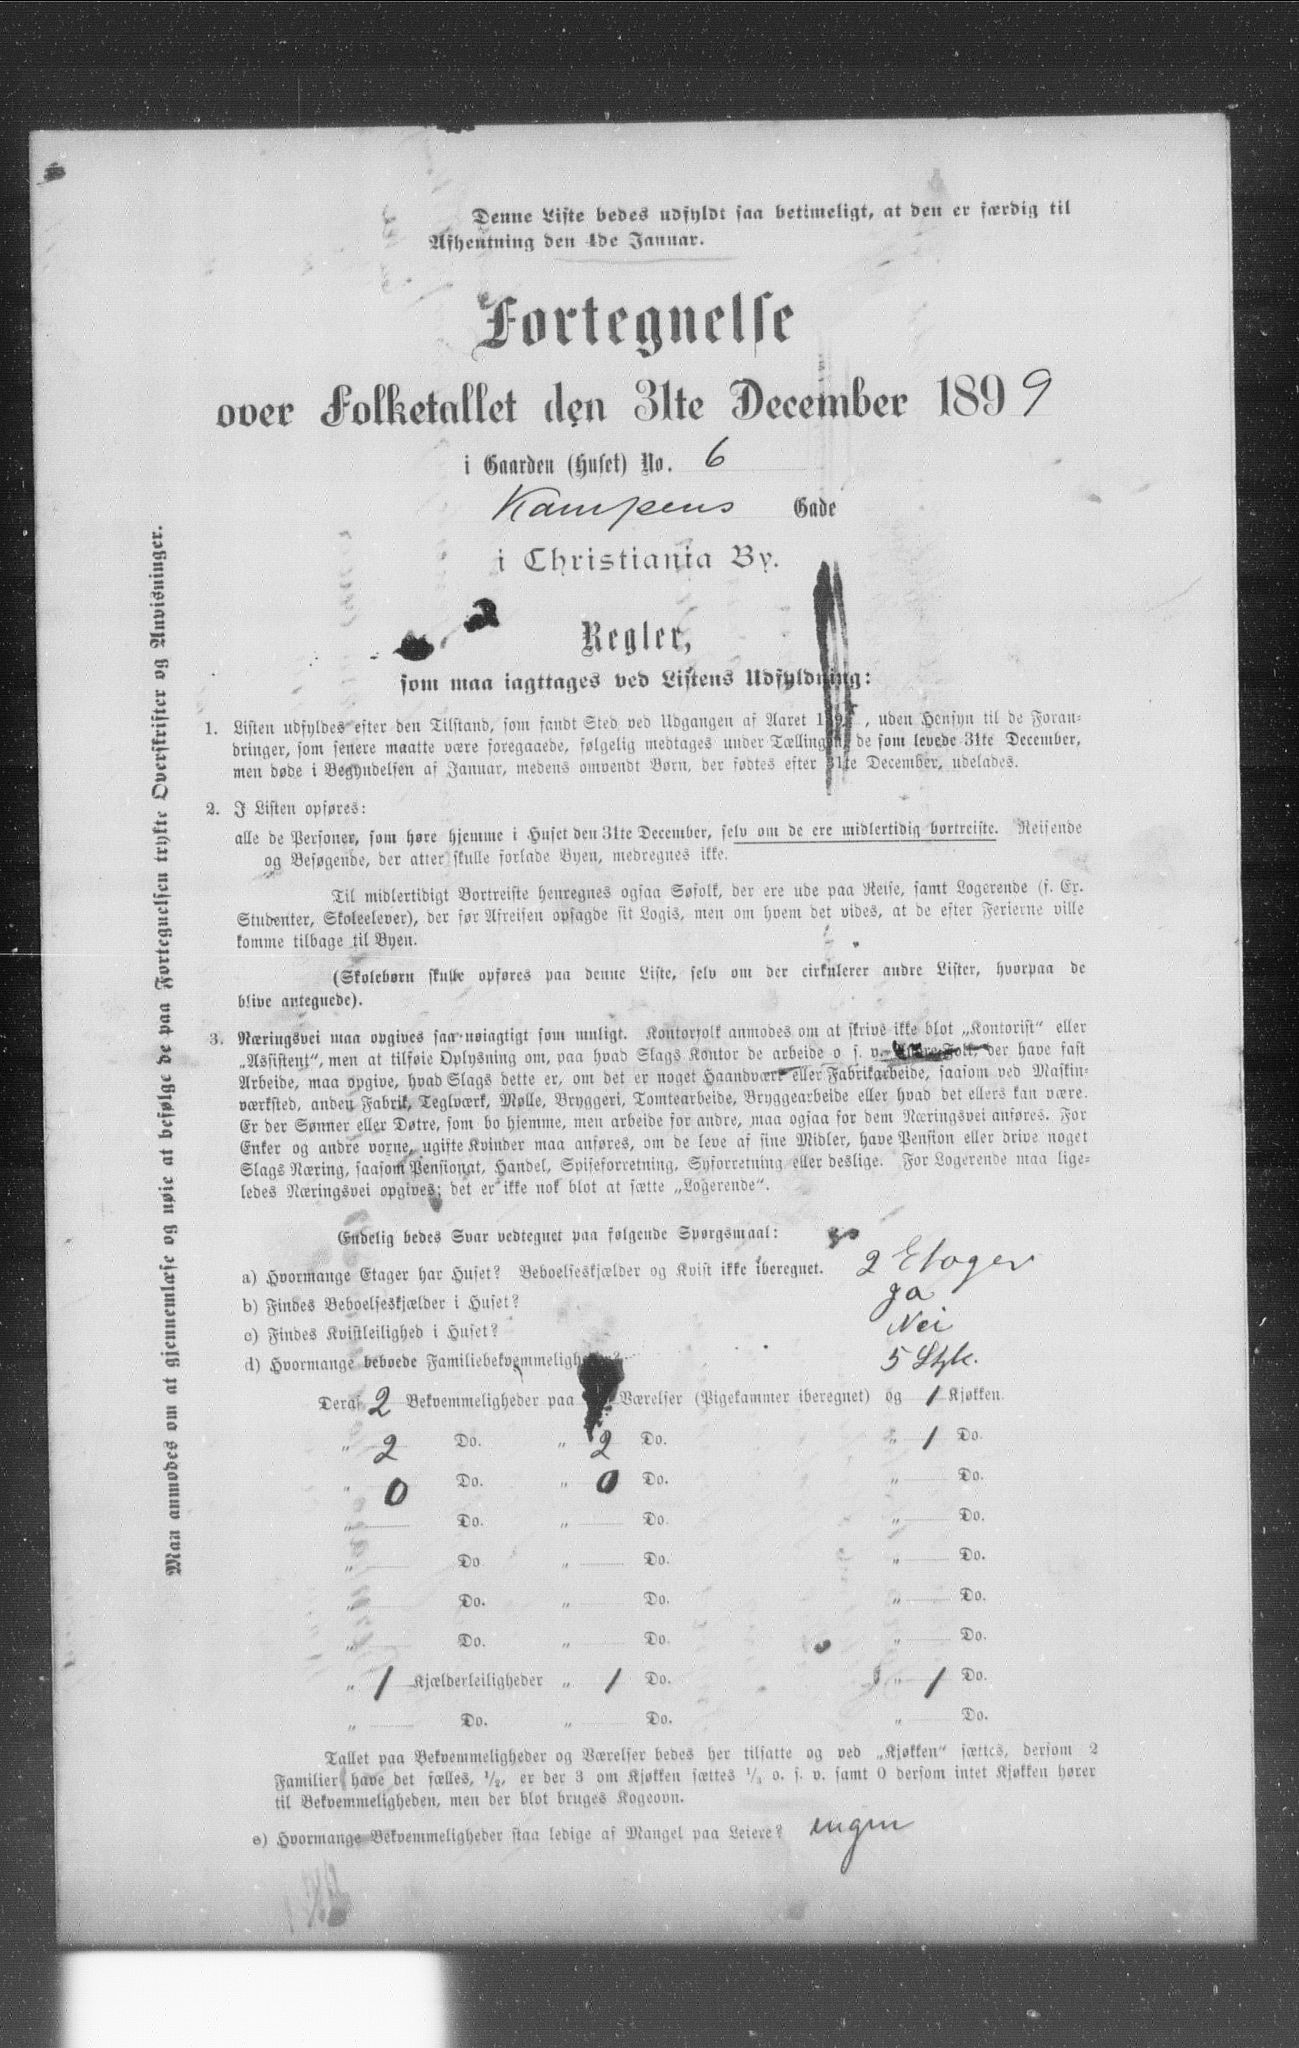 Denne Liste bedes udfyldt saa betimeligt, at den er færdig til
Afhentning den 4de Januar.
Fortegnelse
over Folketallet den 31te December 1899
i Gaarden (Huset) No. 6
Kampens Gade
i Christiania By.
Regler,
som maa iagttages ved Listens Udfyldning:
1. Listen udfyldes efter den Tilstand, som fandt Sted ved Udgangen af Aaret, uden Hensyn til de Foran-
dringer, som senere maatte være foregaaede, følgelig medtages under Tællingen de som levede 31te December,
men døde i Begyndelsen af Januar, medens omvendt Børn, der fødtes efter 31te December, udelades.
2. I Listen opføres:
alle de Personer, som høre hjemme i Huset den 31te December, selv om de ere midlertidig bortreiste. Reisende
og Besøgende, der atter skulle forlade Byen, medregnes ikke.
Til midlertidigt Bortreiste henregnes ogsaa Søfolk, der ere ude paa Reise, samt Logerende (f. Ex.
Studenter, Skoleelever), der før Afreisen opsagde sit Logis, men om hvem det vides, at de efter Ferierne ville
komme tilbage til Byen.
(Skolebørn skulle opføres paa denne Liste, selv om der cirkulerer andre Lister, hvorpaa de
blive antegnede).
3. Næringsvei maa opgives saa nøiagtigt som muligt. Kontorfolk anmodes om at skrive ikke blot „Kontorist“ eller
„Assistent“, men at tilføie Oplysning om, paa hvad Slags Kontor de arbeide o. s. v. Andre Folk, der have fast
Arbeide, maa opgive, hvad Slags dette er, om det er noget Haandværk eller Fabrikarbeide, saasom ved Maskin-
værksted, anden Fabrik, Teglværk, Mølle, Bryggeri, Tomtearbeide, Bryggearbeide eller hvad det ellers kan være.
Er der Sønner eller Døtre, som bo hjemme, men arbeide for andre, maa ogsaa for dem Næringsvei anføres. For
Enker og andre voxne, ugifte Kvinder maa anføres, om de leve af sine Midler, have Pension eller drive noget
Slags Næring, saasom Pensionat, Handel, Spiseforretning, Syforretning eller deslige. For Logerende maa lige-
ledes Næringsvei opgives; det er ikke nok blot at sætte „Logerende“.
Endelig bedes Svar vedtegnet paa følgende Spørgsmaal:
a) Hvormange Etager har Huset? Beboelseskjælder og Kvist ikke iberegnet. 2 Etager
b) Findes Beboelseskjælder i Huset? Ja
c) Findes Kvistleilighed i Huset? Nei
d) Hvormange beboede Familiebekvemmeligheder? 5 Stk.
Deraf 2 Bekvemmeligheder paa Værelser (Pigekammer iberegnet) og 1 Kjøkken.
„ 2 Do. „ 2 Do. „ 1 Do.
„ 0 Do. „ 0 Do. „ Do.
„ Do. „ Do. „ Do.
„ Do. „ Do. „ Do.
„ Do. „ Do. „ Do.
„ Do. „ Do. „ Do.
„ 1 Kjælderleiligheder „ 1 Do. „ 1 Do.
„ Do. „ Do. „ Do.
Tallet paa Bekvemmeligheder og Værelser bedes her tilsatte og ved „Kjøkken“ sættes, dersom 2
Familier have det fælles, 1/2, er der 3 om Kjøkken sættes 1/3 o. s. v. samt 0 dersom intet Kjøkken hører
til Bekvemmeligheden, men der blot bruges Kogeovn.
e) Hvormange Bekvemmeligheder staa ledige af Mangel paa Leiere? ingen
Man anmodes om at gjennemlæse og nøie at befølge de paa Fortegnelsen trykte Overskrifter og Anvisninger.